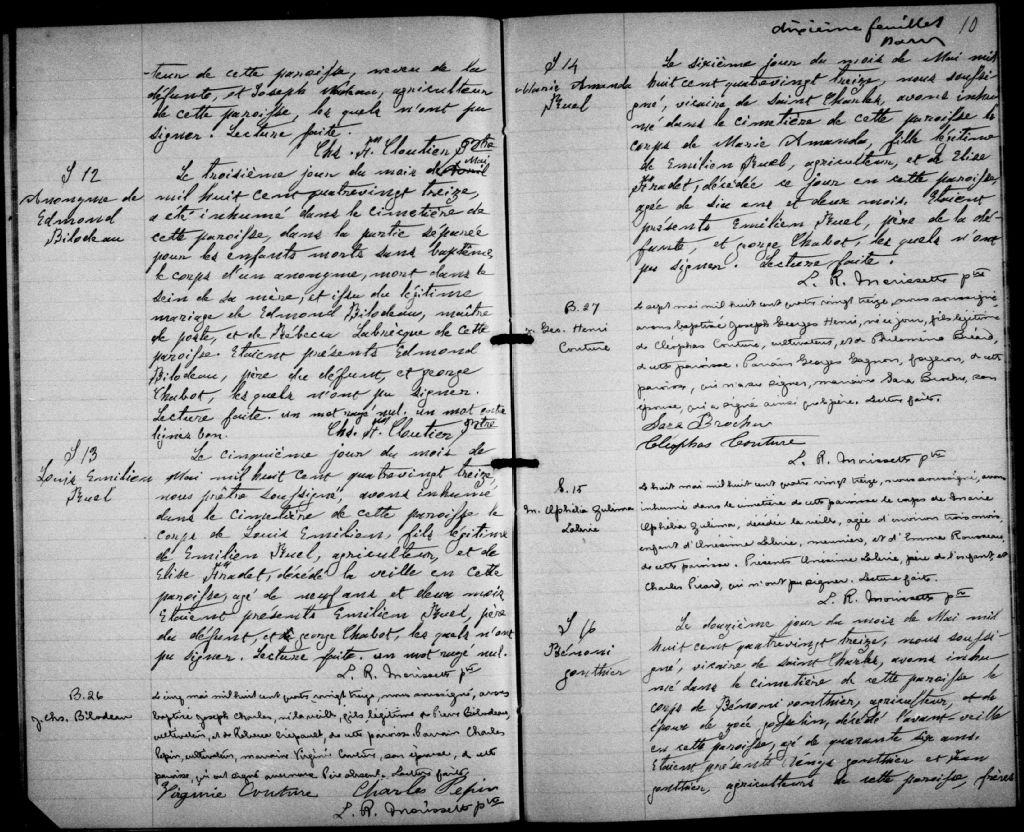 -teur de cette paroisse, neveu de la
défunte, et Joseph agriculteur
de cette paroisse, les quels n'ont pu
signer. Lecture faite.
Chs. F. Cloutier Ptre
S 12
Anonyme de
Edmond
Bilodeau
Le troisième jour du mois de Mai
mil huit cent quatrevingt treize,
a été inhumé dans le cimetière de
cette paroisse, dans la partie séparée
pour les enfants morts sans baptême,
le corps d'un anonyme, mort dans le
sein de sa mère, et issu du légitime
mariage de Edmond Bilodeau, maître
de poste, et de Rébecca Labrècque de cette
paroisse. Etaient présents Edmond
Bilodeau, père du défunt, et george
Chabot, les quels n'ont pu signer.
Lecture faite. un mot rayé nul. un mot entre
lignes bon. Chs. F. Cloutier Ptre
S 13
Louis Emilien
Ruel
Le cinquième jour du mois de
Mai mil huit cent quatrevingt treize,
nous prêtre soussigné, avons inhumé
dans le cimetière de cette paroisse le
corps de Louis Emilien, fils légitime
de Emilien Ruel, agriculteur, et de
Elise Fradet, décédé la veille en cette
paroisse, agé de neuf ans et deux mois
Etaient présents Emilien Ruel, père
du défunt, et george Chabot, les quels n'ont
pu signer. Lecture faite. un mot rayé nul.
L. R. Morissette ptre
B. 26
J. Chs. Bilodeau
Le cinq mai mil huit cent quatre vingt treize, nous soussigné, avons
baptisé Joseph Charles, né la veille, fils légitime de Pierre Bilodeau,
cultivateur, et de de cette paroisse. Parrain Charles
Pepin, cultivateur, marraine Virginie Couture, son épouse, de cette
paroisse, qui ont signé avec nous. Père absent. Lecture faite
Virginie Couture Charles Pepin
L. R. Morissette ptre
dixième feuillet 10
S 14
Marie Amanda
Ruel
Le sixième jour du mois de Mai mil
huit cent quatrevingt treize, nous soussi
gné, vicaire de Saint Charles, avons inhu
mé dans le cimetière de cette paroisse le
corps de Marie Amanda, fille légitime
de Emilien Ruel, agriculteur, et de Elise
Fradet, décédée ce jour en cette paroisse,
agée de six ans et deux mois. Etaient
présents Emilien Ruel, père de la dé-
funte, et george Chabot, les quels n'ont
pu signer. Lecture faite.
L. R. Morissette ptre
B. 27
J. Geo. Henri
Couture
Le sept mai mil huit cent quatre vingt treize, nous soussigné
avons baptisé Joseph Georges Henri, né ce jour, fils légitime
de Cléophas Couture, cultivateur, et de Philomène
de cette paroisse. Parrain Georges Gagnon, forgeron, de cette
paroisse, qui n'a su signer, marraine Sara Brochu, son
épouse, qui a signé ainsi que le père. Lecture faite.
Sara Brochu
Cléophas Couture
L. R. Morissette ptre
S. 15
M. Ophélia Zulima
Labrie
Le huit mai mil huit cent quatre vingt treize, nous soussigné, avons
inhumé dans le cimetière de cette paroisse le corps de Marie
Ophélia Zulima, décédée la veille, agée d'environ trois mois,
enfant d'Onésime Labrie, meunier, et d'Emma Rousseau,
de cette paroisse. Présents Onésime Labrie, père de l'enfant, et
Charles Picard, qui n'ont pu signer. Lecture faite.
L. R. Morissette ptre
S 16
Bénoni
gonthier
Le douzième jour du mois de Mai mil
huit cent quatrevingt treize, nous soussi
gné, vicaire de saint Charles, avons inhu
mé dans le cimetière de cette paroisse le
corps de Bénoni gonthier, agriculteur, et de
époux de zoé décédé l'avant veille
en cette paroisse, agé de quarante six ans.
Etaient présents gonthier et Jean
gonthier, agriculteurs de cette paroisse, frères